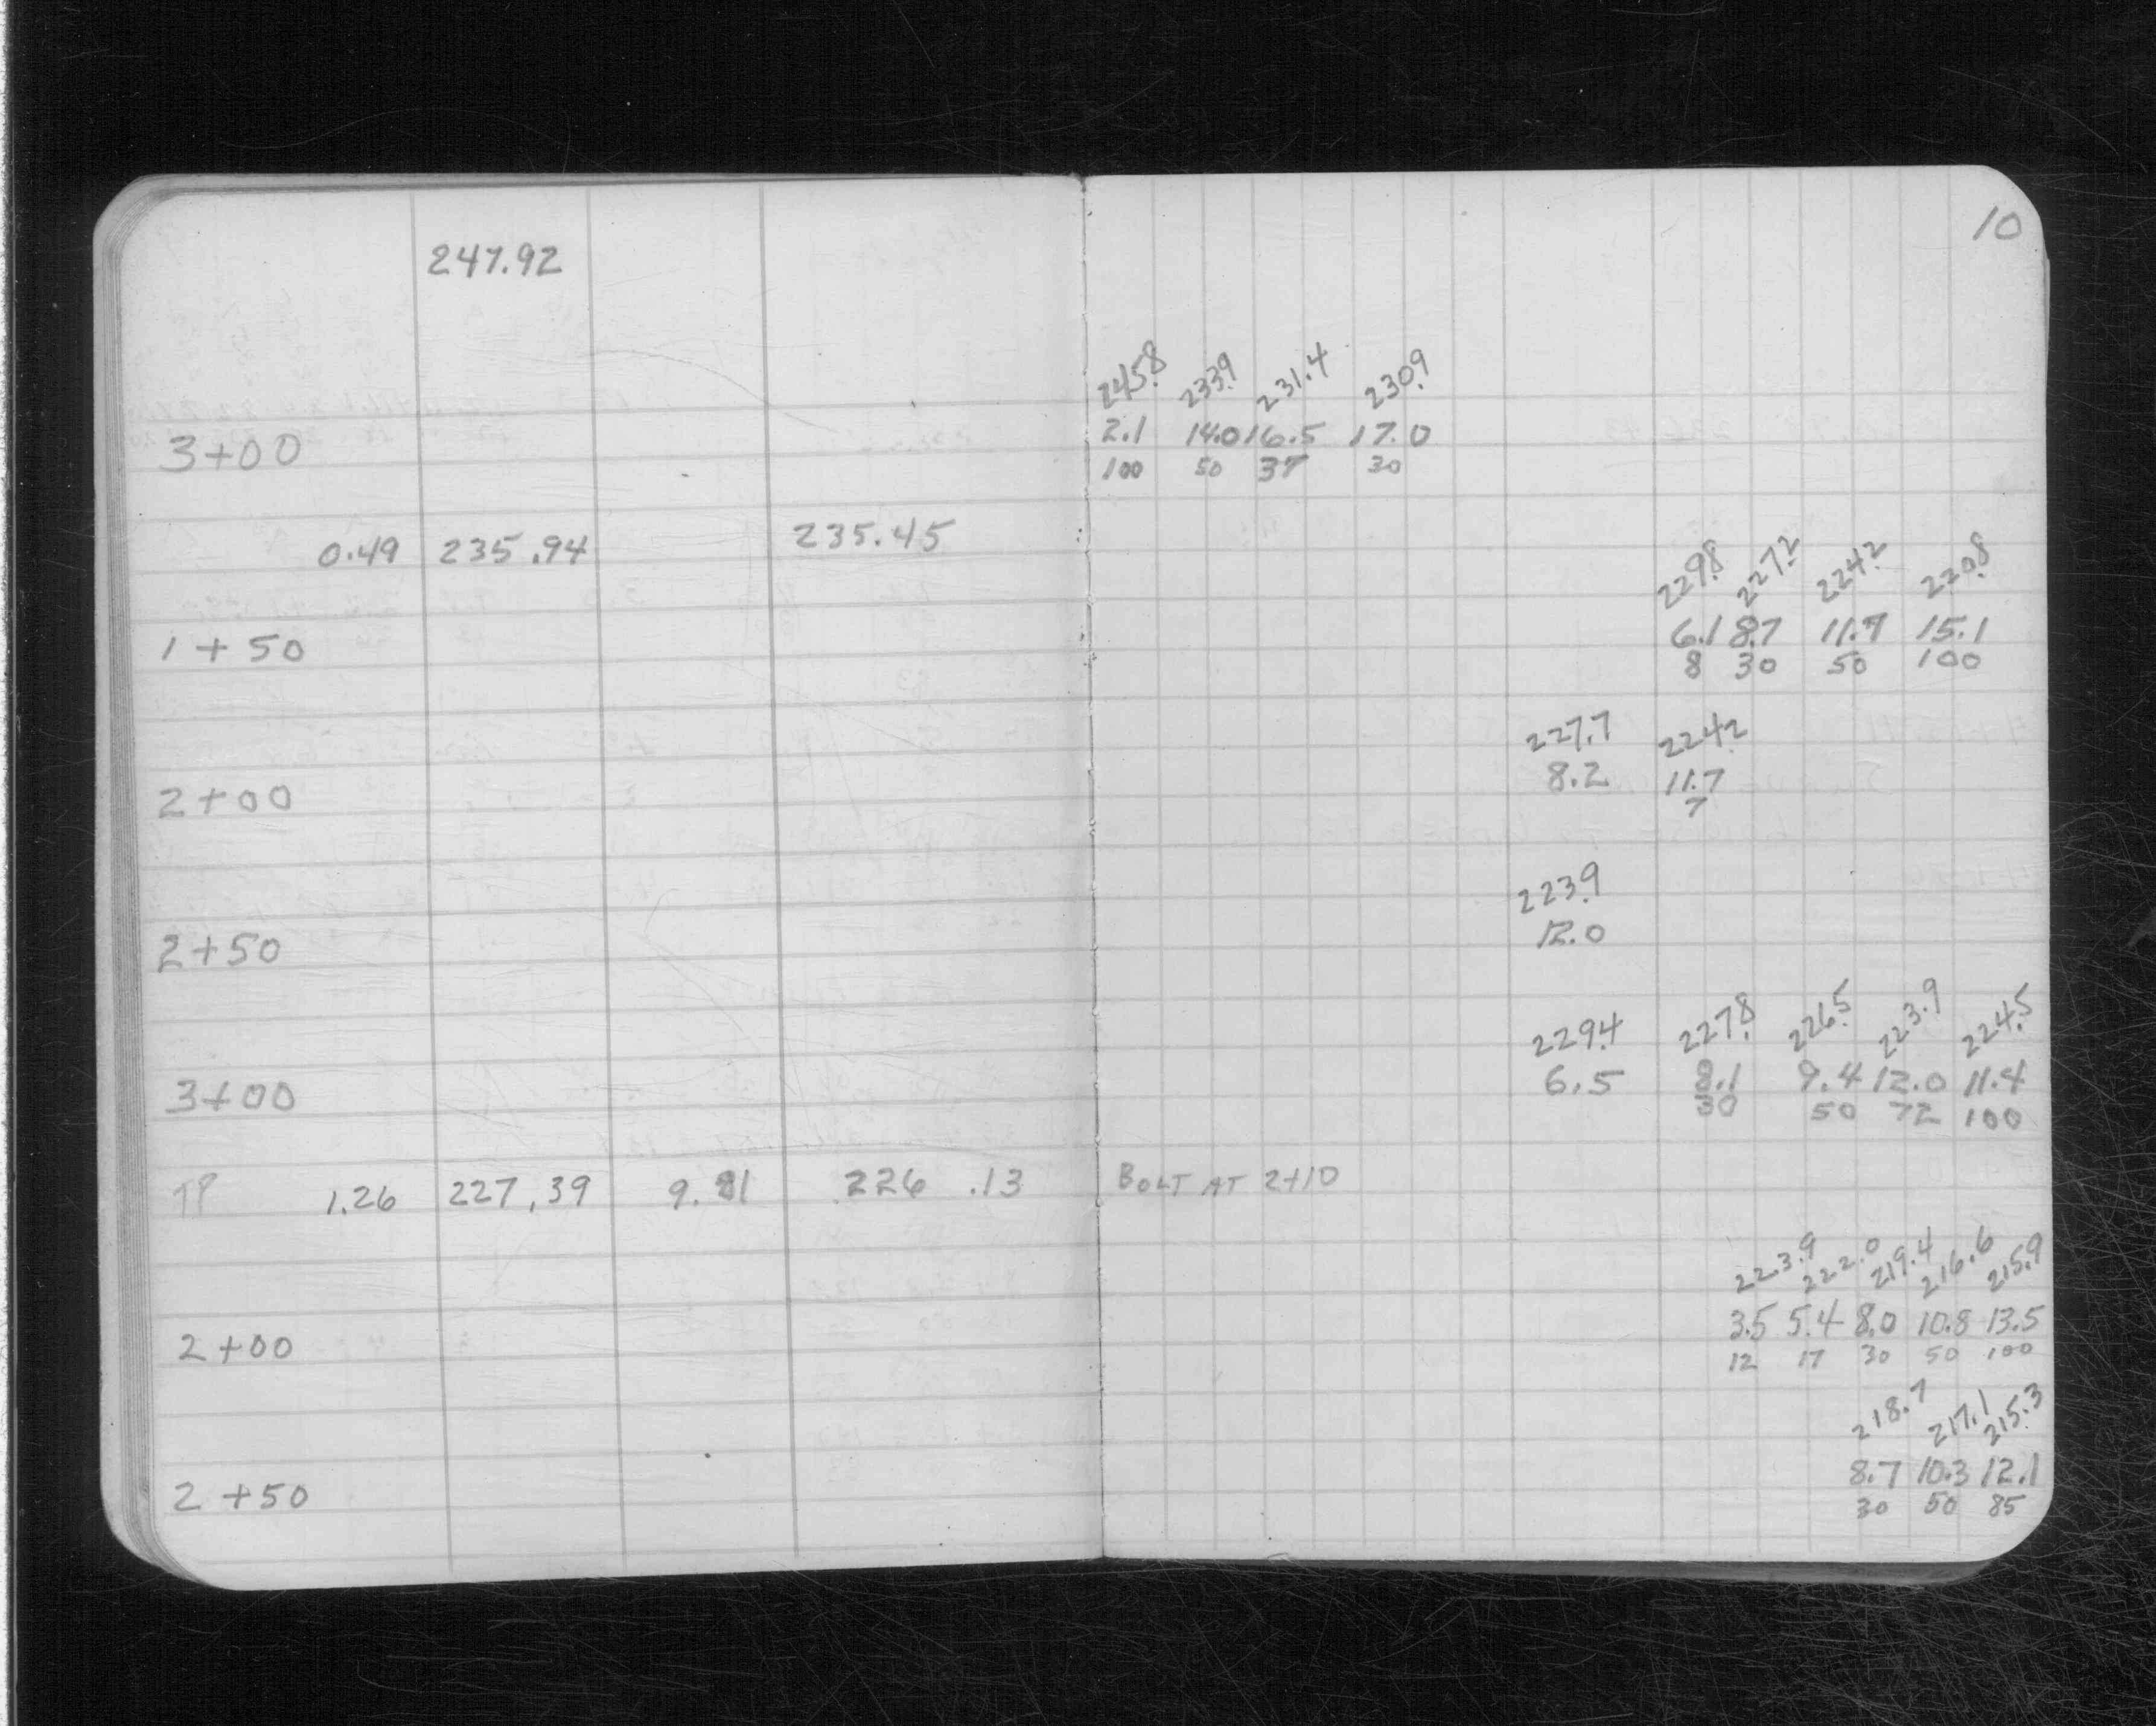 10
247.92
245.8 233.9 231.4 230.9
3+00 2.1 14.0 16.5 17.0
100 50 37 30
0.49 235.94 235.45
229.8 227.2 224.2 220.8
1+50 6.1 8.7 11.7 15.1
8 30 50 100
227.7 224.2
2+00 8.2 11.7
7
223.9
2+50 12.0
229.4 227.8 226.5 223.9 224.5
3+00 6.5 8.1 9.4 12.0 11.4
30 50 72 100
TP 1.26 227.39 9.81 226.13 BOLT AT 2+10
223.9 222.0 219.4 216.6 215.9
2+00 3.5 5.4 8.0 10.8 13.5
12 17 30 50 100
218.7 217.1 215.3
2+50 8.7 10.3 12.1
30 50 85